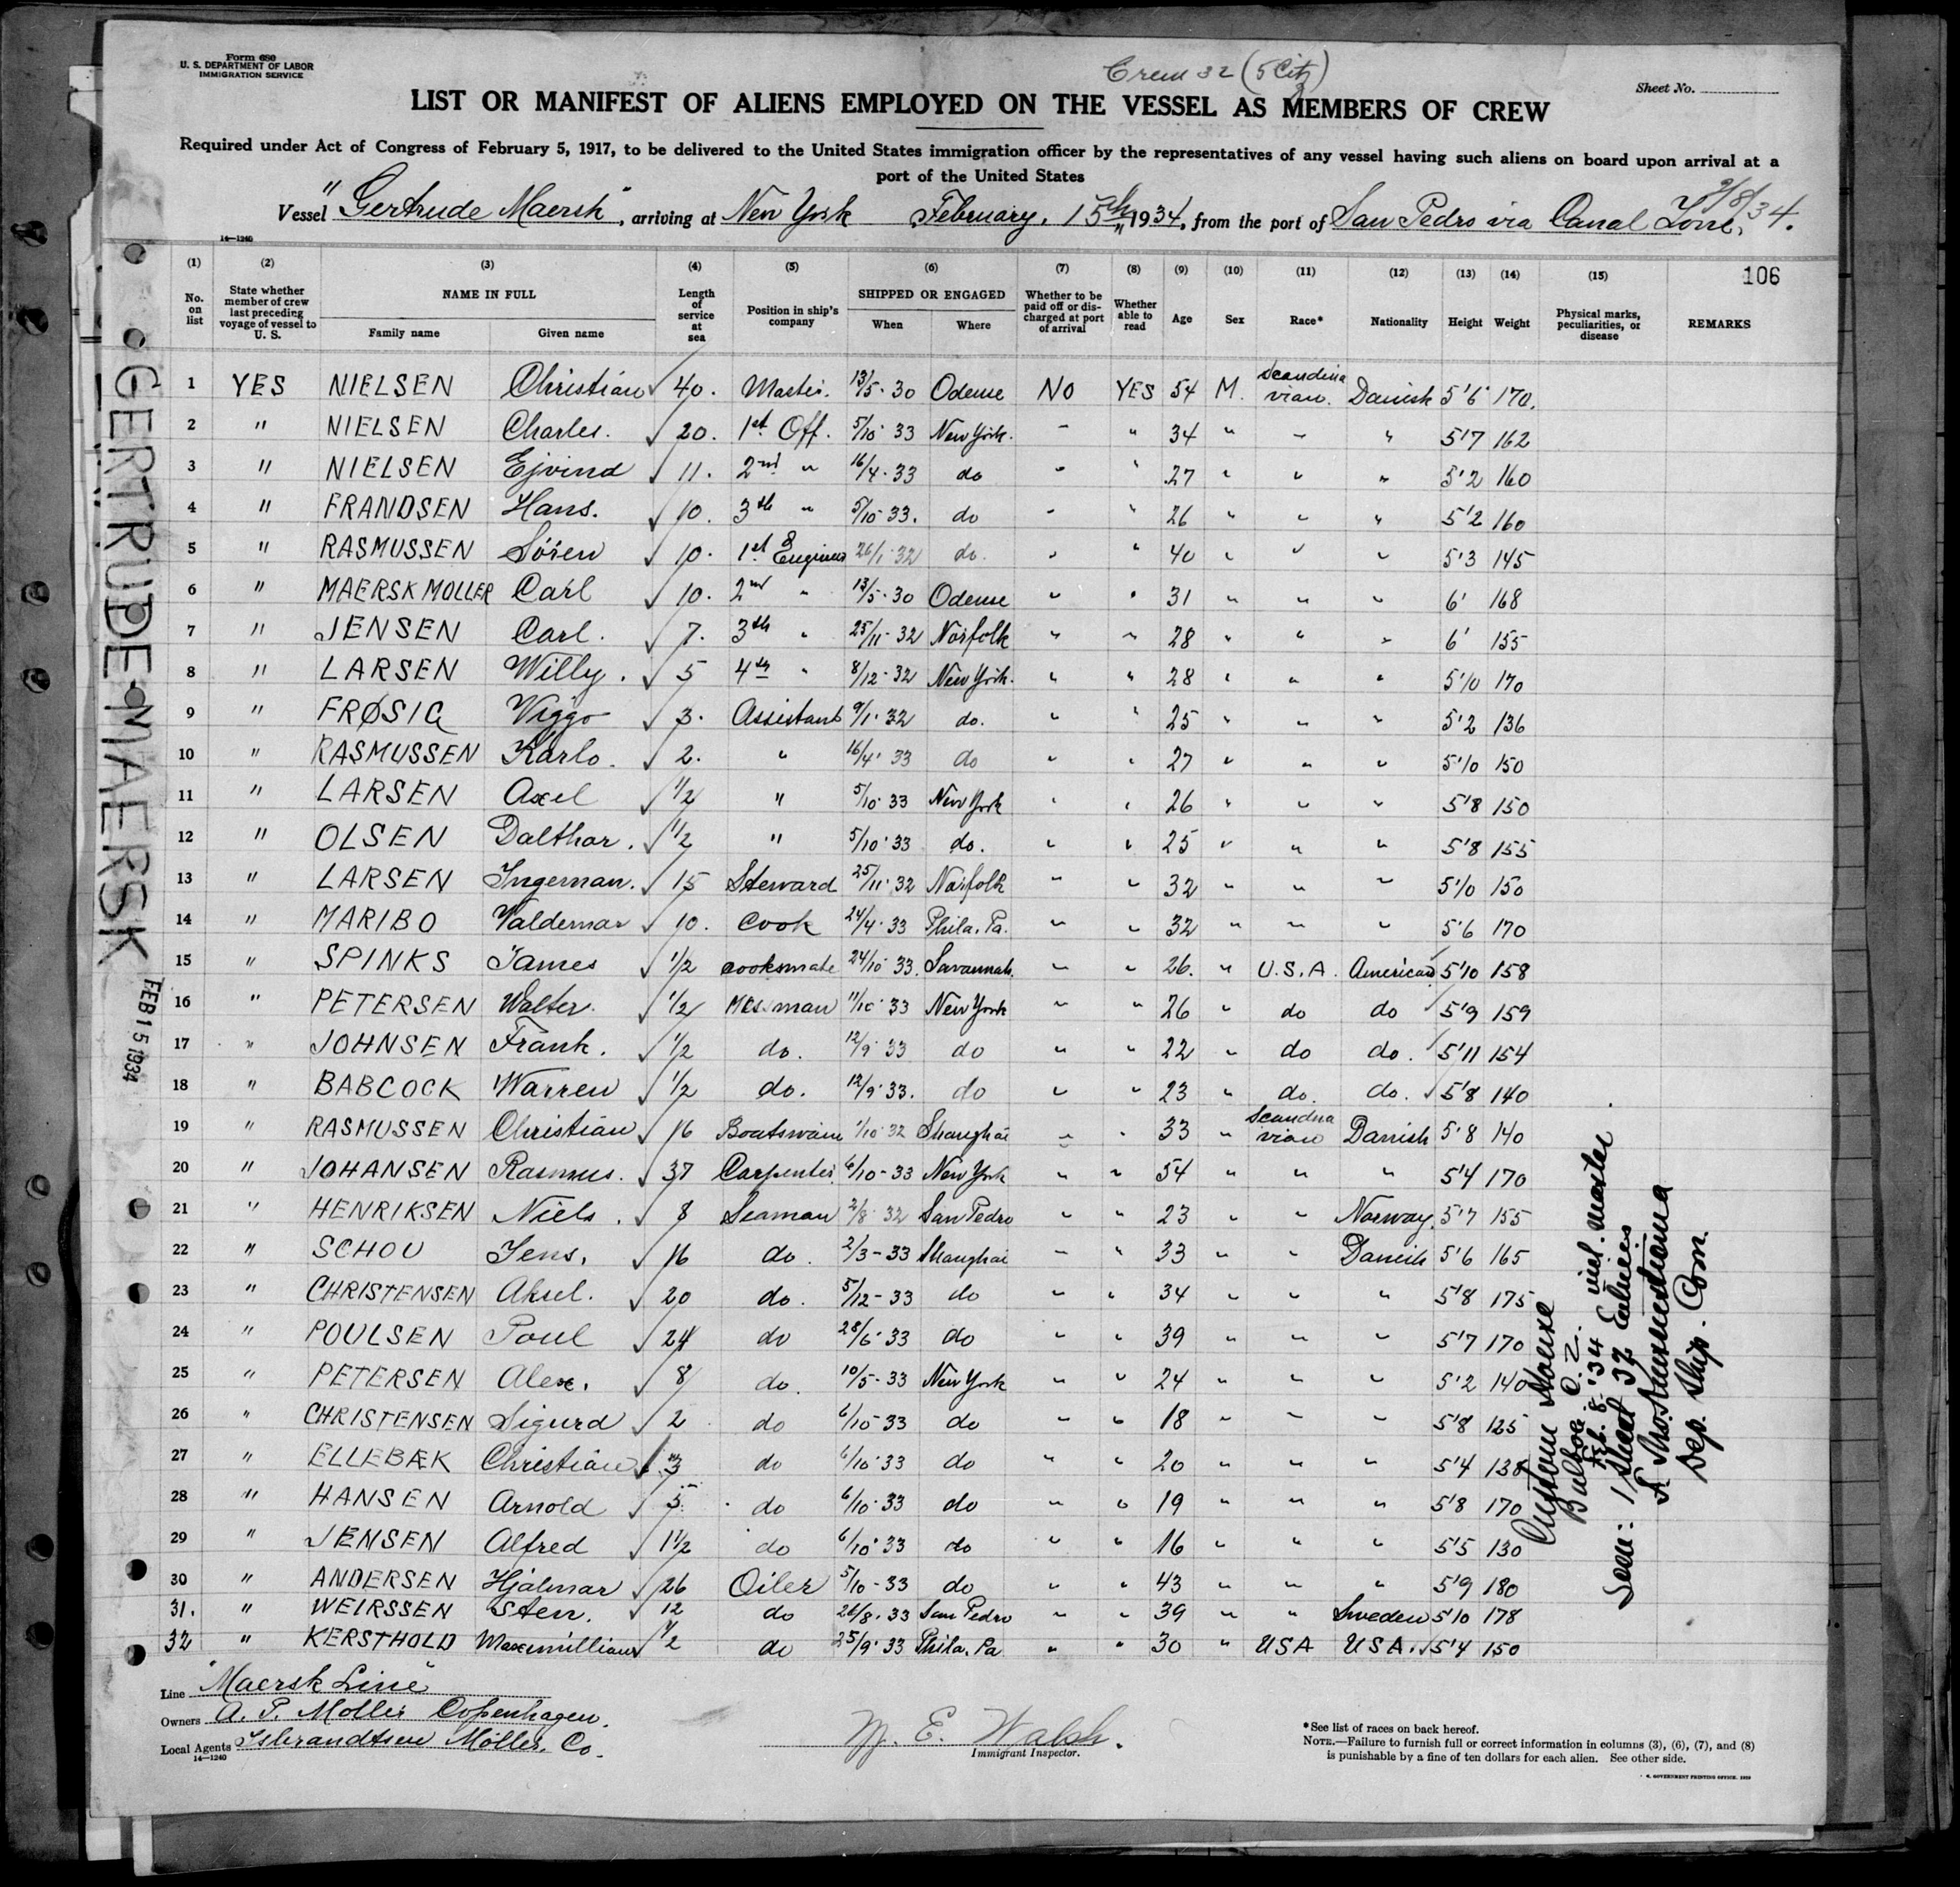 Form 680
U. S. DEPARTMENT OF LABOR
IMMIGRATION SERVICE
Crew 32 (5 Citz)
Sheet No.
LIST OR MANIFEST OF ALIENS EMPLOYED ON THE VESSEL AS MEMBERS OF CREW
Required under Act of Congress of February 5, 1917, to be delivered to the United States immigration officer by the representatives of any vessel having such aliens on board upon arrival at a
port of the United States
2/8/34.
Vessel "Gertrude Maersk", arriving at New York February, 15th, 1934, from the port of San Pedro via Canal Zone,
14—1240
(1) (2) (3) (4) (5) (6) (7) (8) (9) (10) (11) (12) (13) (14) (15) 106
No. on list | State whether member of crew last preceding voyage of vessel to U. S. | NAME IN FULL Family name Given name | Length of service at sea | Position in ship's company | SHIPPED OR ENGAGED When Where | Whether to be paid off or discharged at port of arrival | Whether able to read | Age | Sex | Race* | Nationality | Height | Weight | Physical marks, peculiarities, or disease | REMARKS
1 YES NIELSEN Christian √ 40. Master. 13/5-30 Odense NO YES 54 M. Scandinavian. Danish 5'6 170.
2 " NIELSEN Charles. √ 20. 1st Off. 5/10 33 New York. - " 34 " - " 5'7 162
3 " NIELSEN Ejvind √ 11. 2nd " 16/4-33 do " " 27 " " " 5'2 160
4 " FRANDSEN Hans. √ 10. 3th " 5/10-33. do - " 26 " " " 5'2 160
5 " RASMUSSEN Sören √ 10. 1st Engineer 26/1-32 do. " " 40 " " " 5'3 145
6 " MAERSK MOLLER Carl √ 10. 2nd " 13/5-30 Odense " " 31 " " " 6' 168
7 " JENSEN Carl. √ 7. 3th " 25/11-32 Norfolk " " 28 " " " 6' 155
8 " LARSEN Willy. √ 5 4th " 8/12-32 New York. " " 28 " " " 5'10 170
9 " FRØSIG Viggo √ 3. Assistant 9/1-32 do. " " 25 " " " 5'2 136
10 " RASMUSSEN Karlo. √ 2. " 16/4-33 do " " 27 " " " 5'10 150
11 " LARSEN Axel √ 1/2 " 5/10-33 New York " " 26 " " " 5'8 150
12 " OLSEN Dalthar. √ 1/2 " 5/10-33 do. " " 25 " " " 5'8 155
13 " LARSEN Ingeman. √ 15 Steward 25/11-32 Norfolk " " 32 " " " 5'10 150
14 " MARIBO Valdemar √ 10. Cook 24/4-33 Phila. Pa. " " 32 " " " 5'6 170
15 " SPINKS James √ 1/2 cooksmate 24/10-33. Savannah. " " 26. " U.S.A. American 5'10 158
16 " PETERSEN Walter. √ 1/2 Messman 11/10-33 New York " " 26 " do do √ 5'9 159
17 " JOHNSEN Frank. √ 1/2 do. 12/9-33 do " " 22 " do do. √ 5'11 154
18 " BABCOCK Warren √ 1/2 do. 12/9-33. do " " 23 " do. do. √ 5'8 140
19 " RASMUSSEN Christian √ 16 Boatswain 1/10-32 Shanghai " " 33 " Scandinavian Danish 5'8 140
20 " JOHANSEN Rasmus. √ 37 Carpenter 6/10-33 New York " " 54 " " " 5'4 170
21 " HENRIKSEN Niels. √ 8 Seaman 2/8-32 San Pedro " " 23 " " Norway. 5'7 155
22 " SCHOU Jens. √ 16 do. 2/3-33 Shanghai " " 33 " " Danish 5'6 165
23 " CHRISTENSEN Aksel. √ 20 do. 5/12-33 do " " 34 " " " 5'8 175
24 " POULSEN Poul √ 24 do 28/6-33 do " " 39 " " " 5'7 170
25 " PETERSEN Alex. √ 8 do. 10/5-33 New York " " 24 " " " 5'2 140
26 " CHRISTENSEN Sigurd √ 2 do 6/10-33 do " " 18 " " " 5'8 125
27 " ELLEBÆK Christian √ 3 do 6/10-33 do " " 20 " " " 5'4 138
28 " HANSEN Arnold √ 5 do 6/10-33 do " " 19 " " " 5'8 170
29 " JENSEN Alfred √ 1 1/2 do 6/10-33 do " " 16 " " " 5'5 130
30 " ANDERSEN Hjalmar √ 26 Oiler 5/10-33 do " " 43 " " " 5'9 180
31. " WEIRSSEN Sten. √ 12 do 26/8-33 San Pedro " " 39 " " Sweden 5'10 178
32 " KERSTHOLD Maxemillian √ 1/2 do 25/9-33 Phila. Pa " " 30 " USA USA. √ 5'4 150
GERTRUDE MAERSK
FEB 15 1934
Custom House
Balboa C. Z.
Feb. 8. '34
Seen: 1 Sheet 32 Entries incl. master
Dep. Ship. Com.
Line "Maersk Line"
Owners A. P. Moller Copenhagen.
Local Agents Isbrandtsen Möller. Co.
14—1240
M. E. Walsh.
Immigrant Inspector.
*See list of races on back hereof.
NOTE.—Failure to furnish full or correct information in columns (3), (6), (7), and (8)
is punishable by a fine of ten dollars for each alien. See other side.
GOVERNMENT PRINTING OFFICE